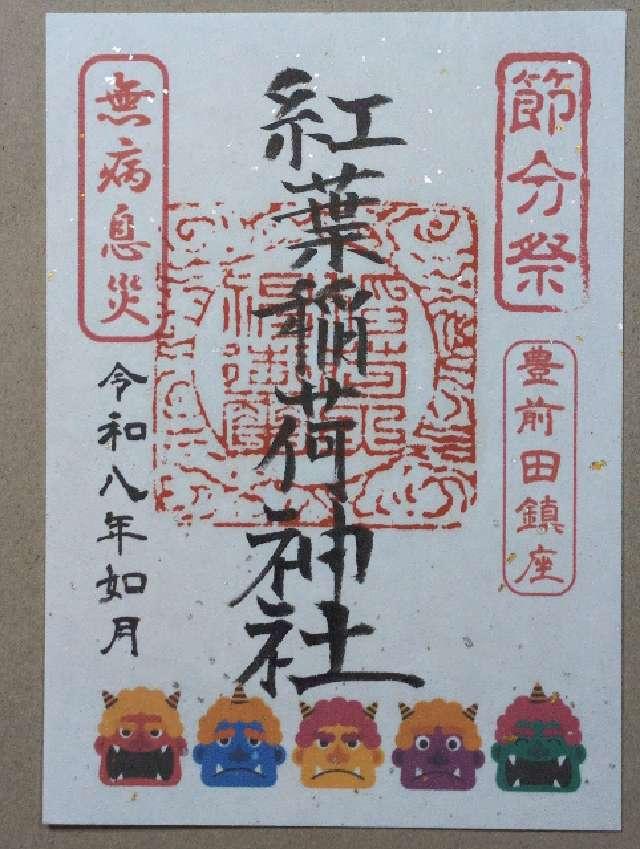 節分祭
豊前田鎮座
紅葉稲荷神社
無病息災
令和八年如月